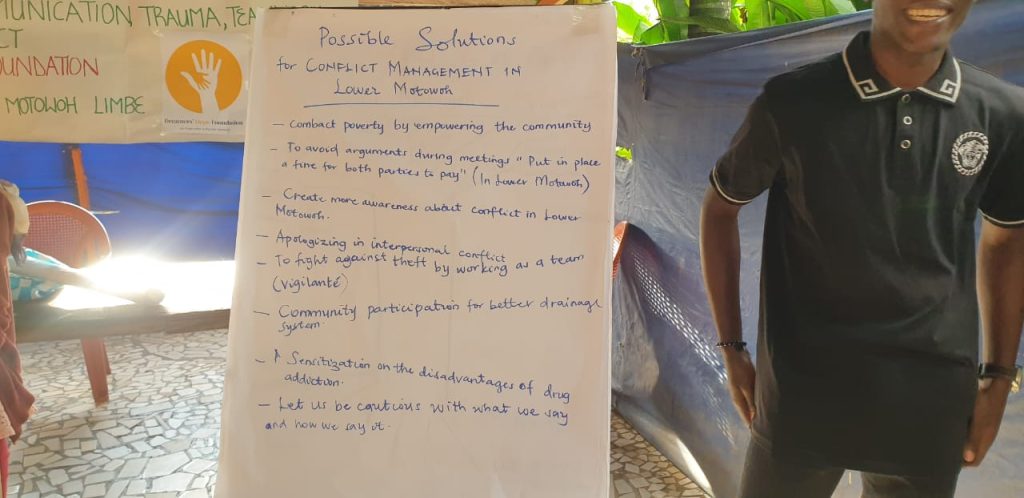 MUNICATION TRAUMA, TEA
CT
OUNDATION
MOTOWOH LIMBE
Dreamers' Hope Foundation
Possible Solutions
for CONFLICT MANAGEMENT IN
Lower Motowoh
- Combact poverty by empowering the community
- To avoid arguments during meetings "Put in place
a fine for both parties to pay" (In Lower Motowoh)
- Create more awareness about conflict in Lower
Motowoh.
- Apologizing in interpersonal conflict
- To fight against theft by working as a team
(vigilanté)
- Community participation for better drainage
system.
- Sensitization on the disadvantages of drug
addiction.
- Let us be cautious with what we say
and how we say it.